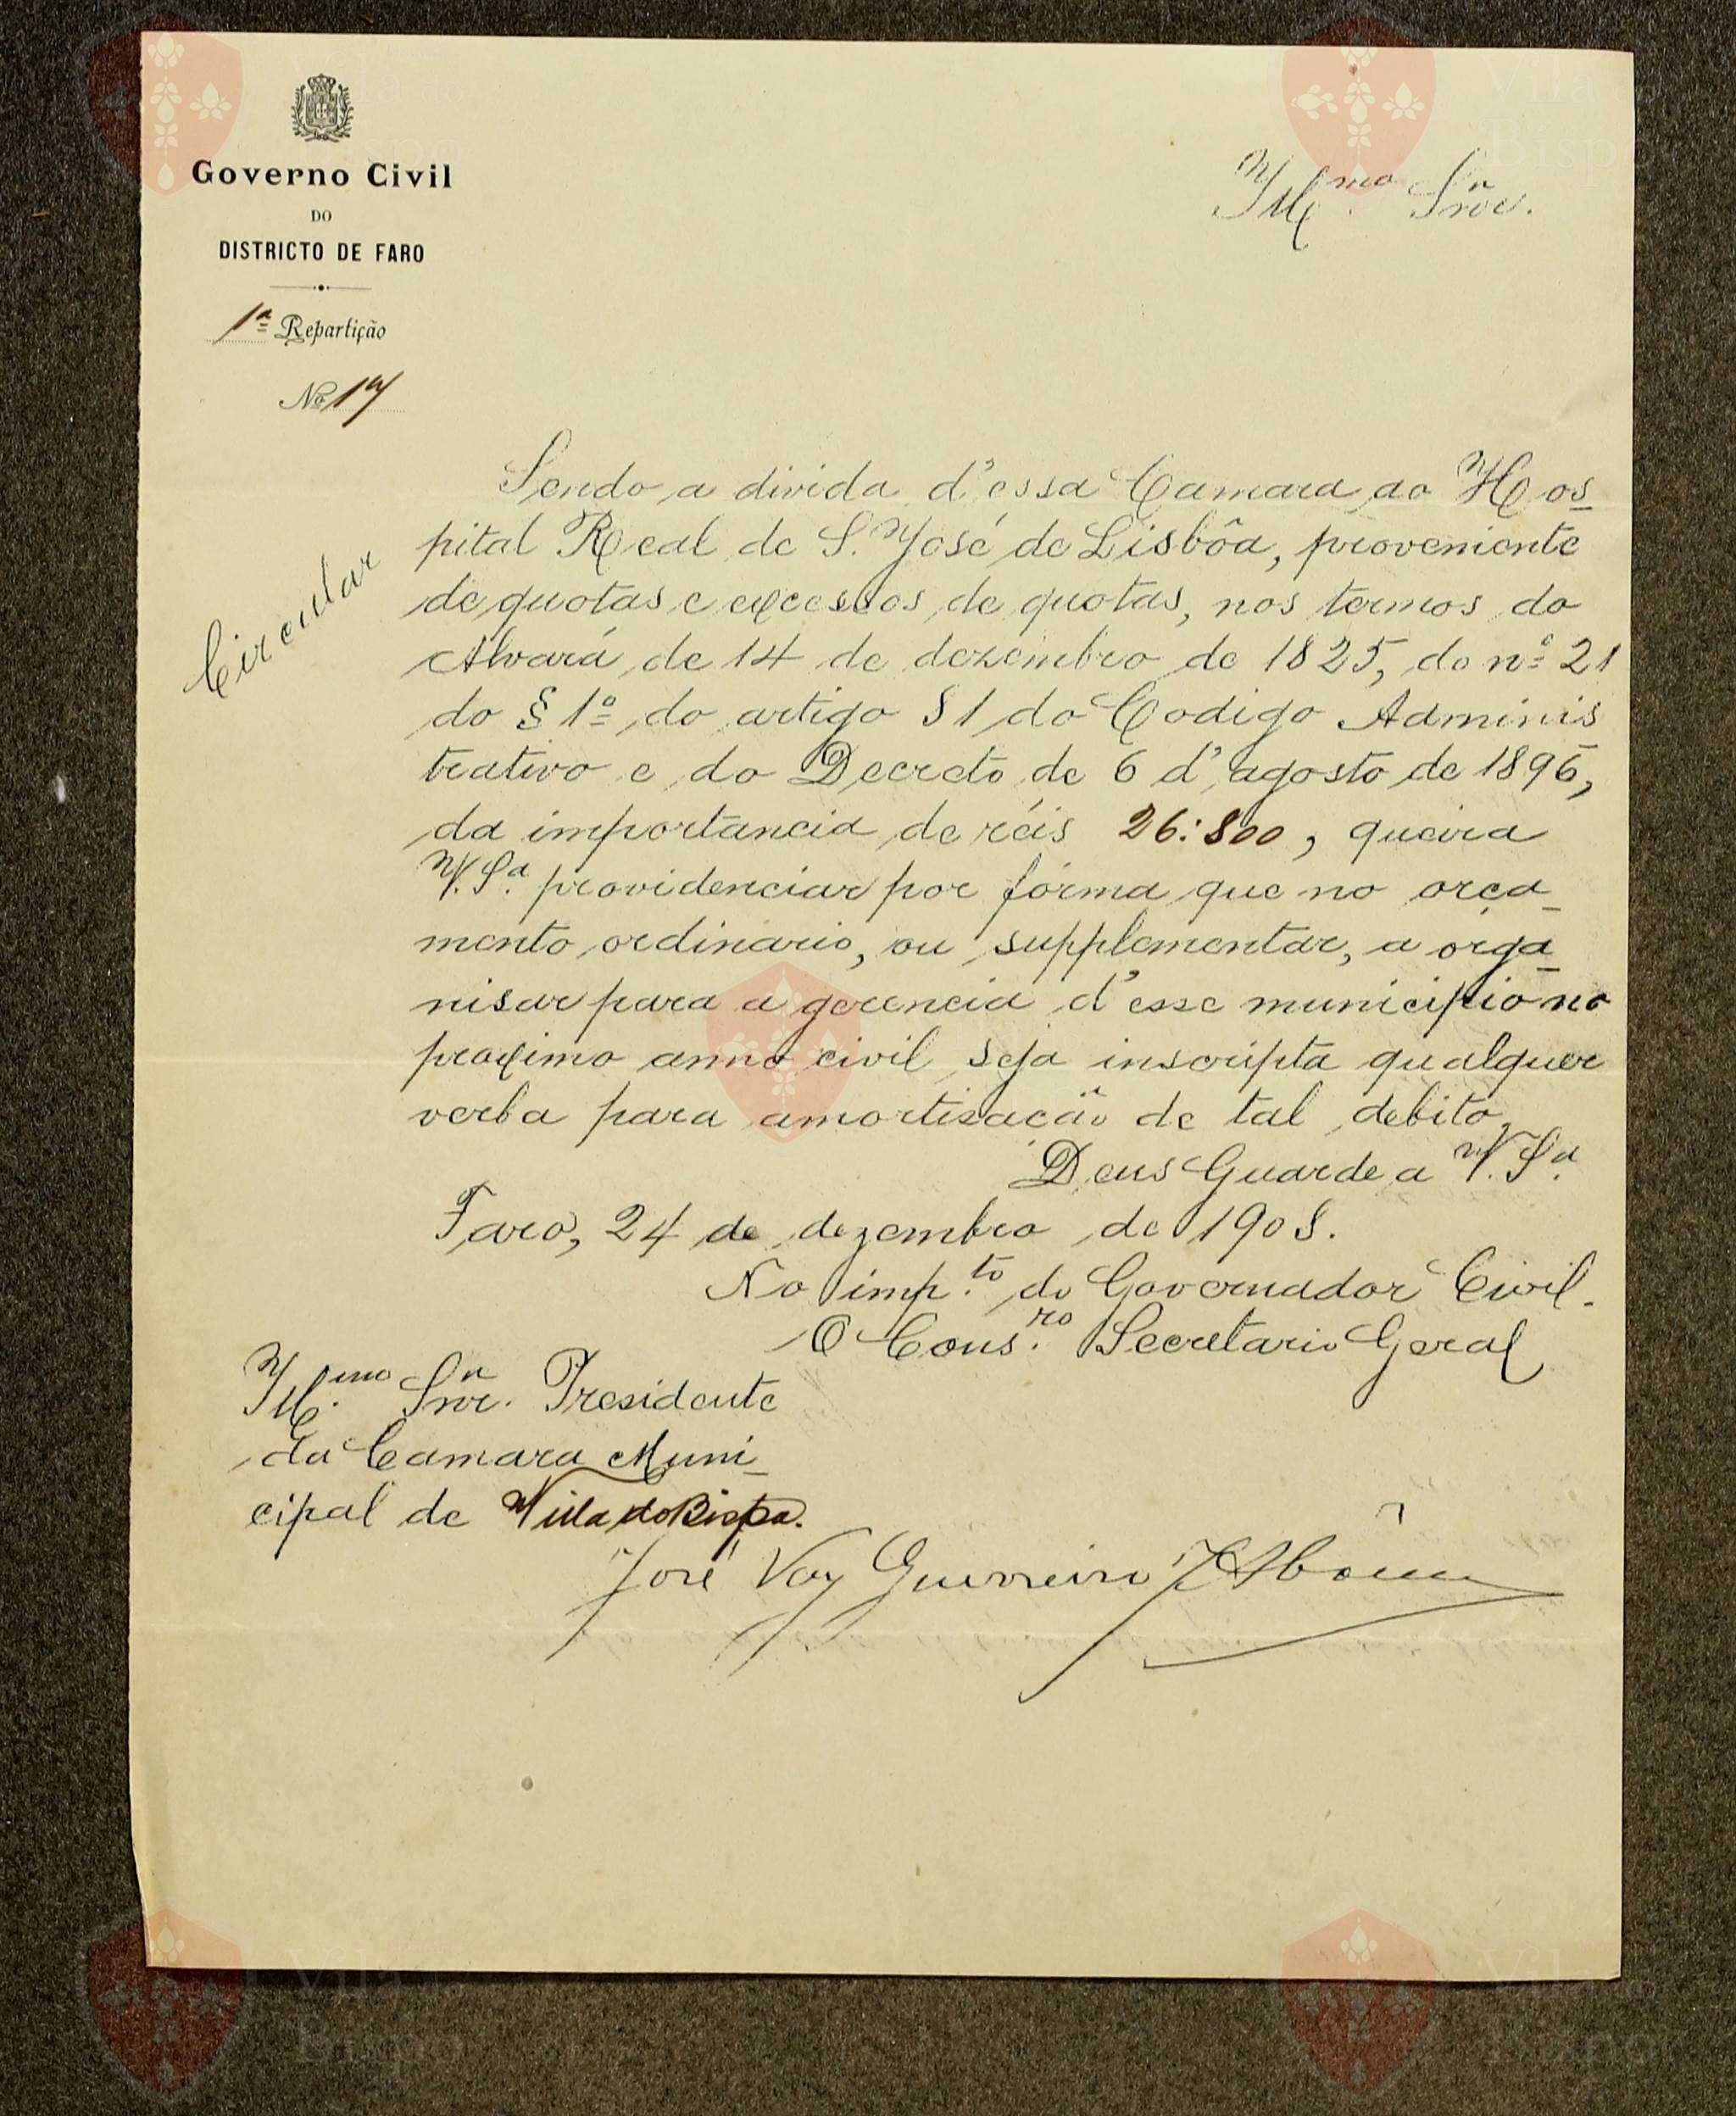 Governo Civil
DO
DISTRICTO DE FARO
1ª Repartição
Nº 17
Illmo. Snr.
Circular
Sendo a divida d'essa Camara ao Hos-
pital Real de S. José de Lisbôa, proveniente
de quotas e excessos de quotas, nos termos do
Alvará de 14 de dezembro de 1825, do nº 21
do § 1º do artigo 81 do Codigo Adminis-
trativo e do Decreto de 6 d'agosto de 1896,
da importancia de réis 26:800, queira
V. Sª. providenciar por fórma que no orça-
mento ordinario, ou supplementar, a orga-
nisar para a gerencia d'esse municipio no
proximo anno civil seja inscripta qualquer
verba para amortisação de tal debito.
Deus Guarde a V. Sª.
Faro, 24 de dezembro de 1908.
No imp.to do Governador Civil.
O Cons.ro Secretario Geral
Illmo. Snr. Presidente
da Camara Muni-
cipal de Villa do Bispo.
José Vaz Guerreiro J Aboim
Vila
Bispo